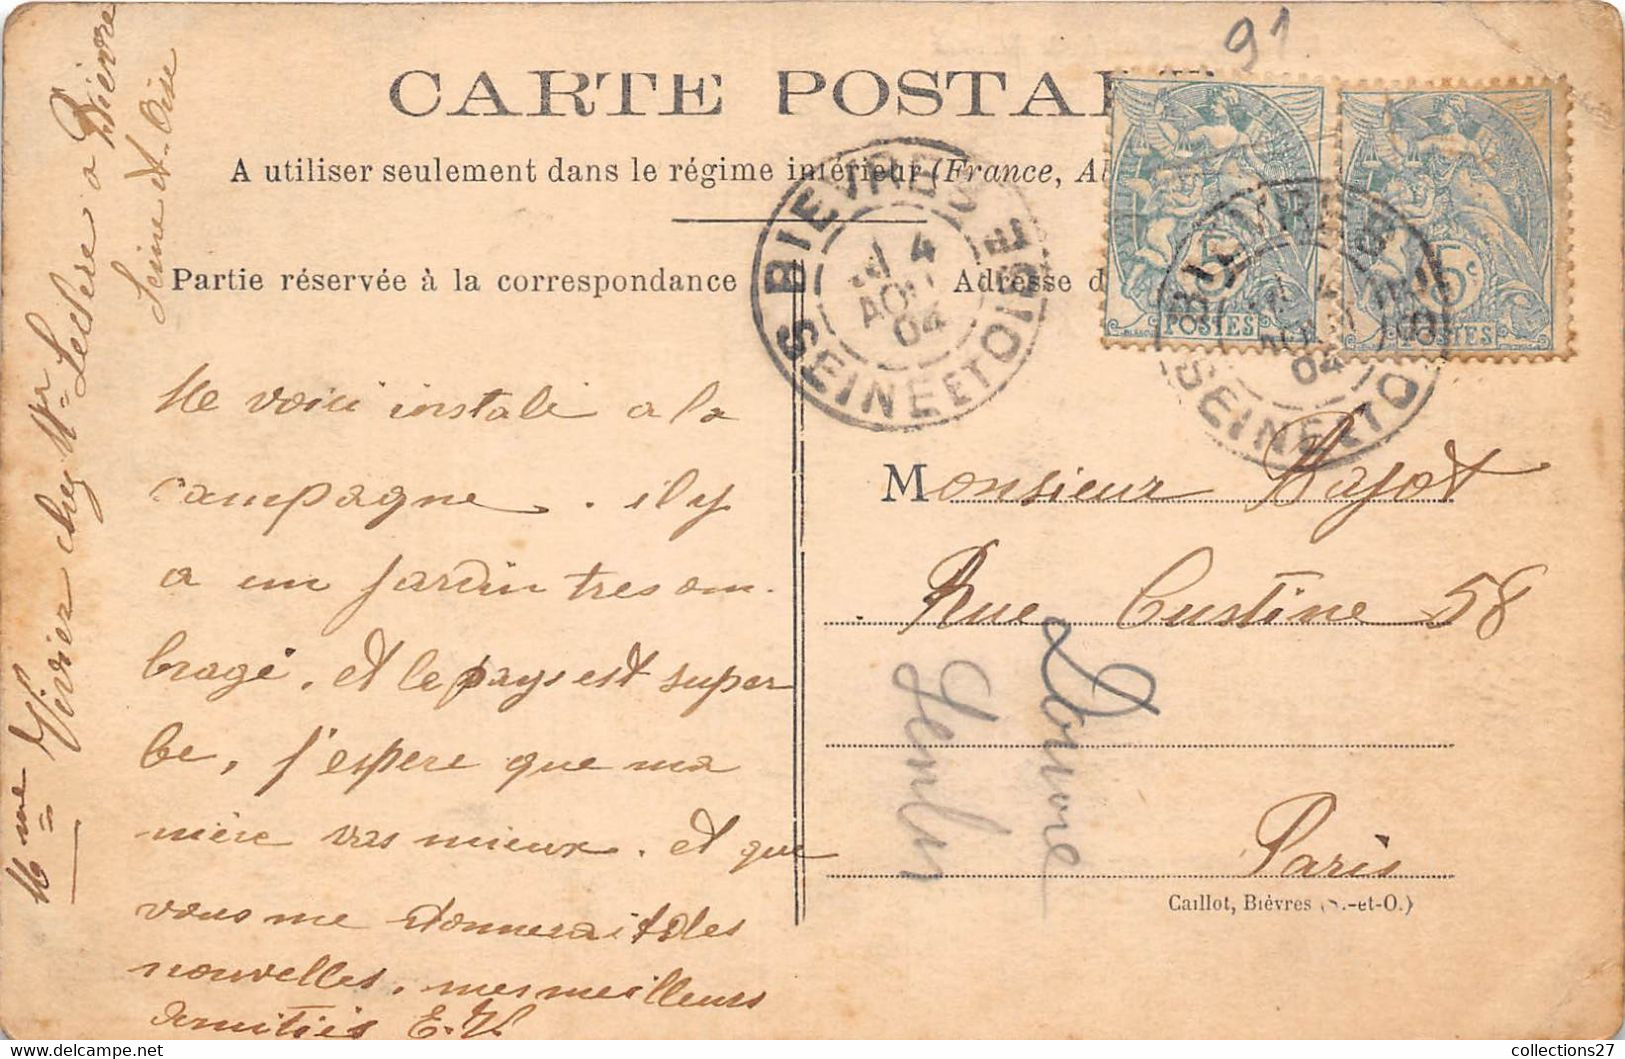 91
CARTE POSTAL
A utiliser seulement dans le régime intérieur (France, Al
Partie réservée à la correspondance
Adresse d
BIEVRES
4
AOU
04
SEINE ET OISE
BIEVRES
04
SEINE ET OISE
5c
POSTES
5c
POSTES
Me voici instalé a la
campagne. il y
a un jardin tres om-
bragé, et le pays est super
be, j'espere que ma
mère vas mieux. et que
vous me donnerait des
nouvelles. mes meilleurs
amitiés E.V.
Mme Vivier chez Mr Leclere a Bievre
Seine et Oise
Monsieur Bajot
Rue Custine 58
Paris
Louvre
Caillot, Bièvres (S.-et-O.)
collections27